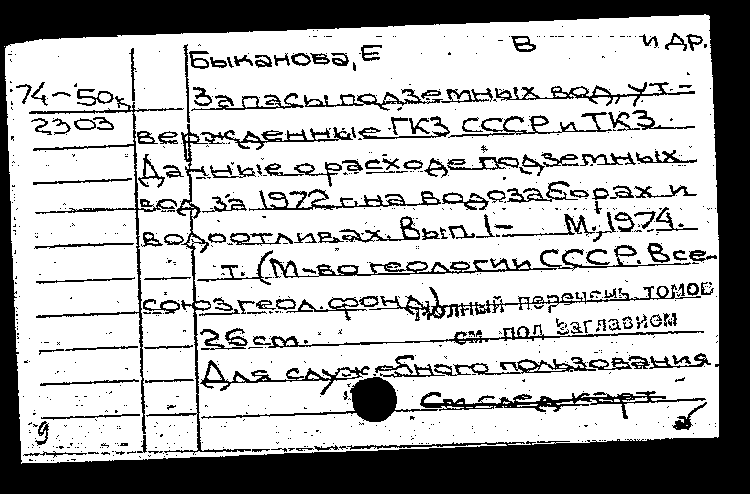 Быканова, Е В и др.
74-50к Запасы подземных вод, ут-
2303 вержденные ГКЗ СССР и ТКЗ.
Данные о расходе подземных
вод за 1972 г. на водозаборах и
водоотливах. Вып. 1- М., 1974.
т. (М-во геологии СССР. Все-
союз. геол. фонд)
Полный перечень томов
26 см. см. под заглавием
Для служебного пользования.
См след карт
9